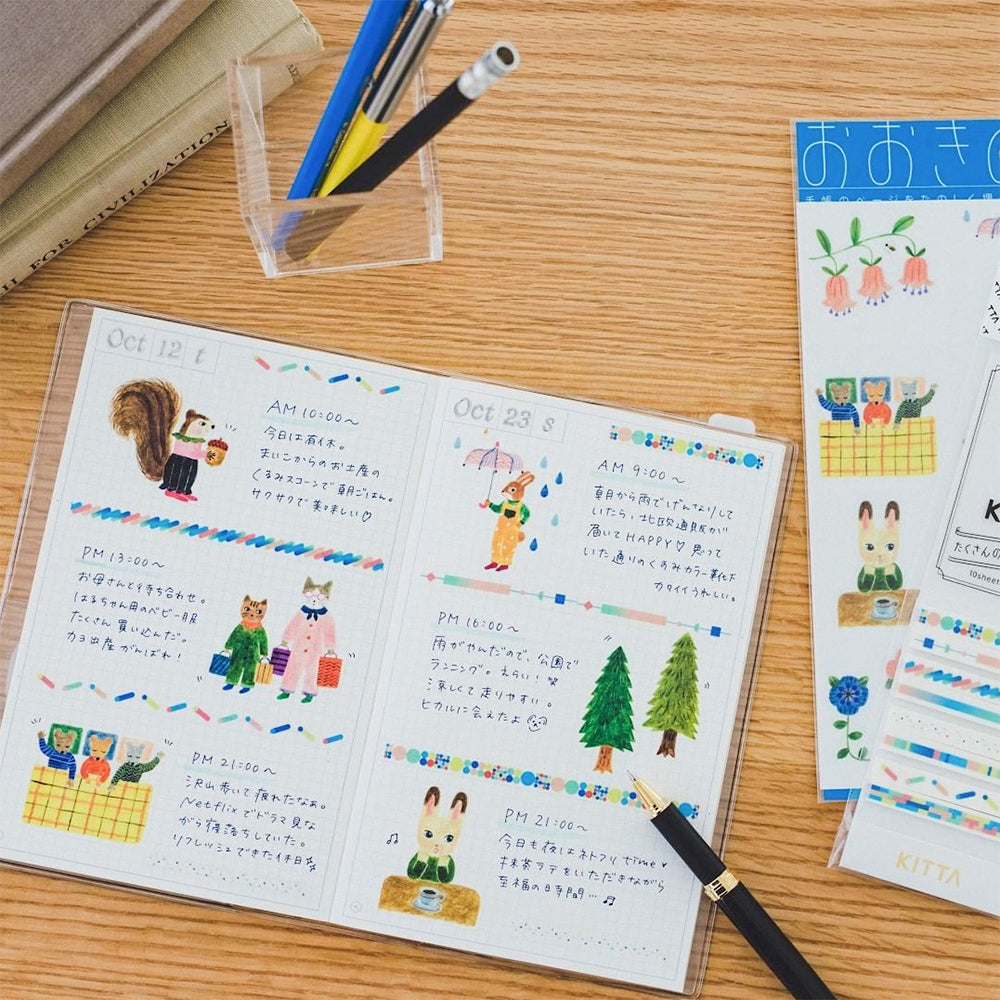 H FOR CIVILIZATION
おおきな
手帳のページをたのしく
Oct 12 t
AM 10:00〜
今日は有休。
まいこからのお土産の
くるみスコーンで朝ごはん。
サクサクで美味しい♡
PM 13:00〜
お母さんと待ち合わせ。
はるちゃん用のベビー服
たくさん買い込んだ。
カヨ出産がんばれ!
PM 21:00〜
沢山歩いて疲れたなぁ。
Netflixでドラマ見な
がら寝落ちしていた。
リフレッシュできた休日
Oct 23 s
AM 9:00〜
朝から雨でげんなりして
いたら、北欧通販が
届いてHAPPY♡思って
いた通りのくるみカラー靴下
カワイイうれしい。
PM 16:00〜
雨がやんだので、公園で
ランニング。えらい!
涼しくて走りやすい。
ヒカルに会えたよ
PM 21:00〜
今日も夜はネトフリtime♥
抹茶ラテをいただきながら
至福の日時間…♫
K
たくさんの
10sheet
KITTA